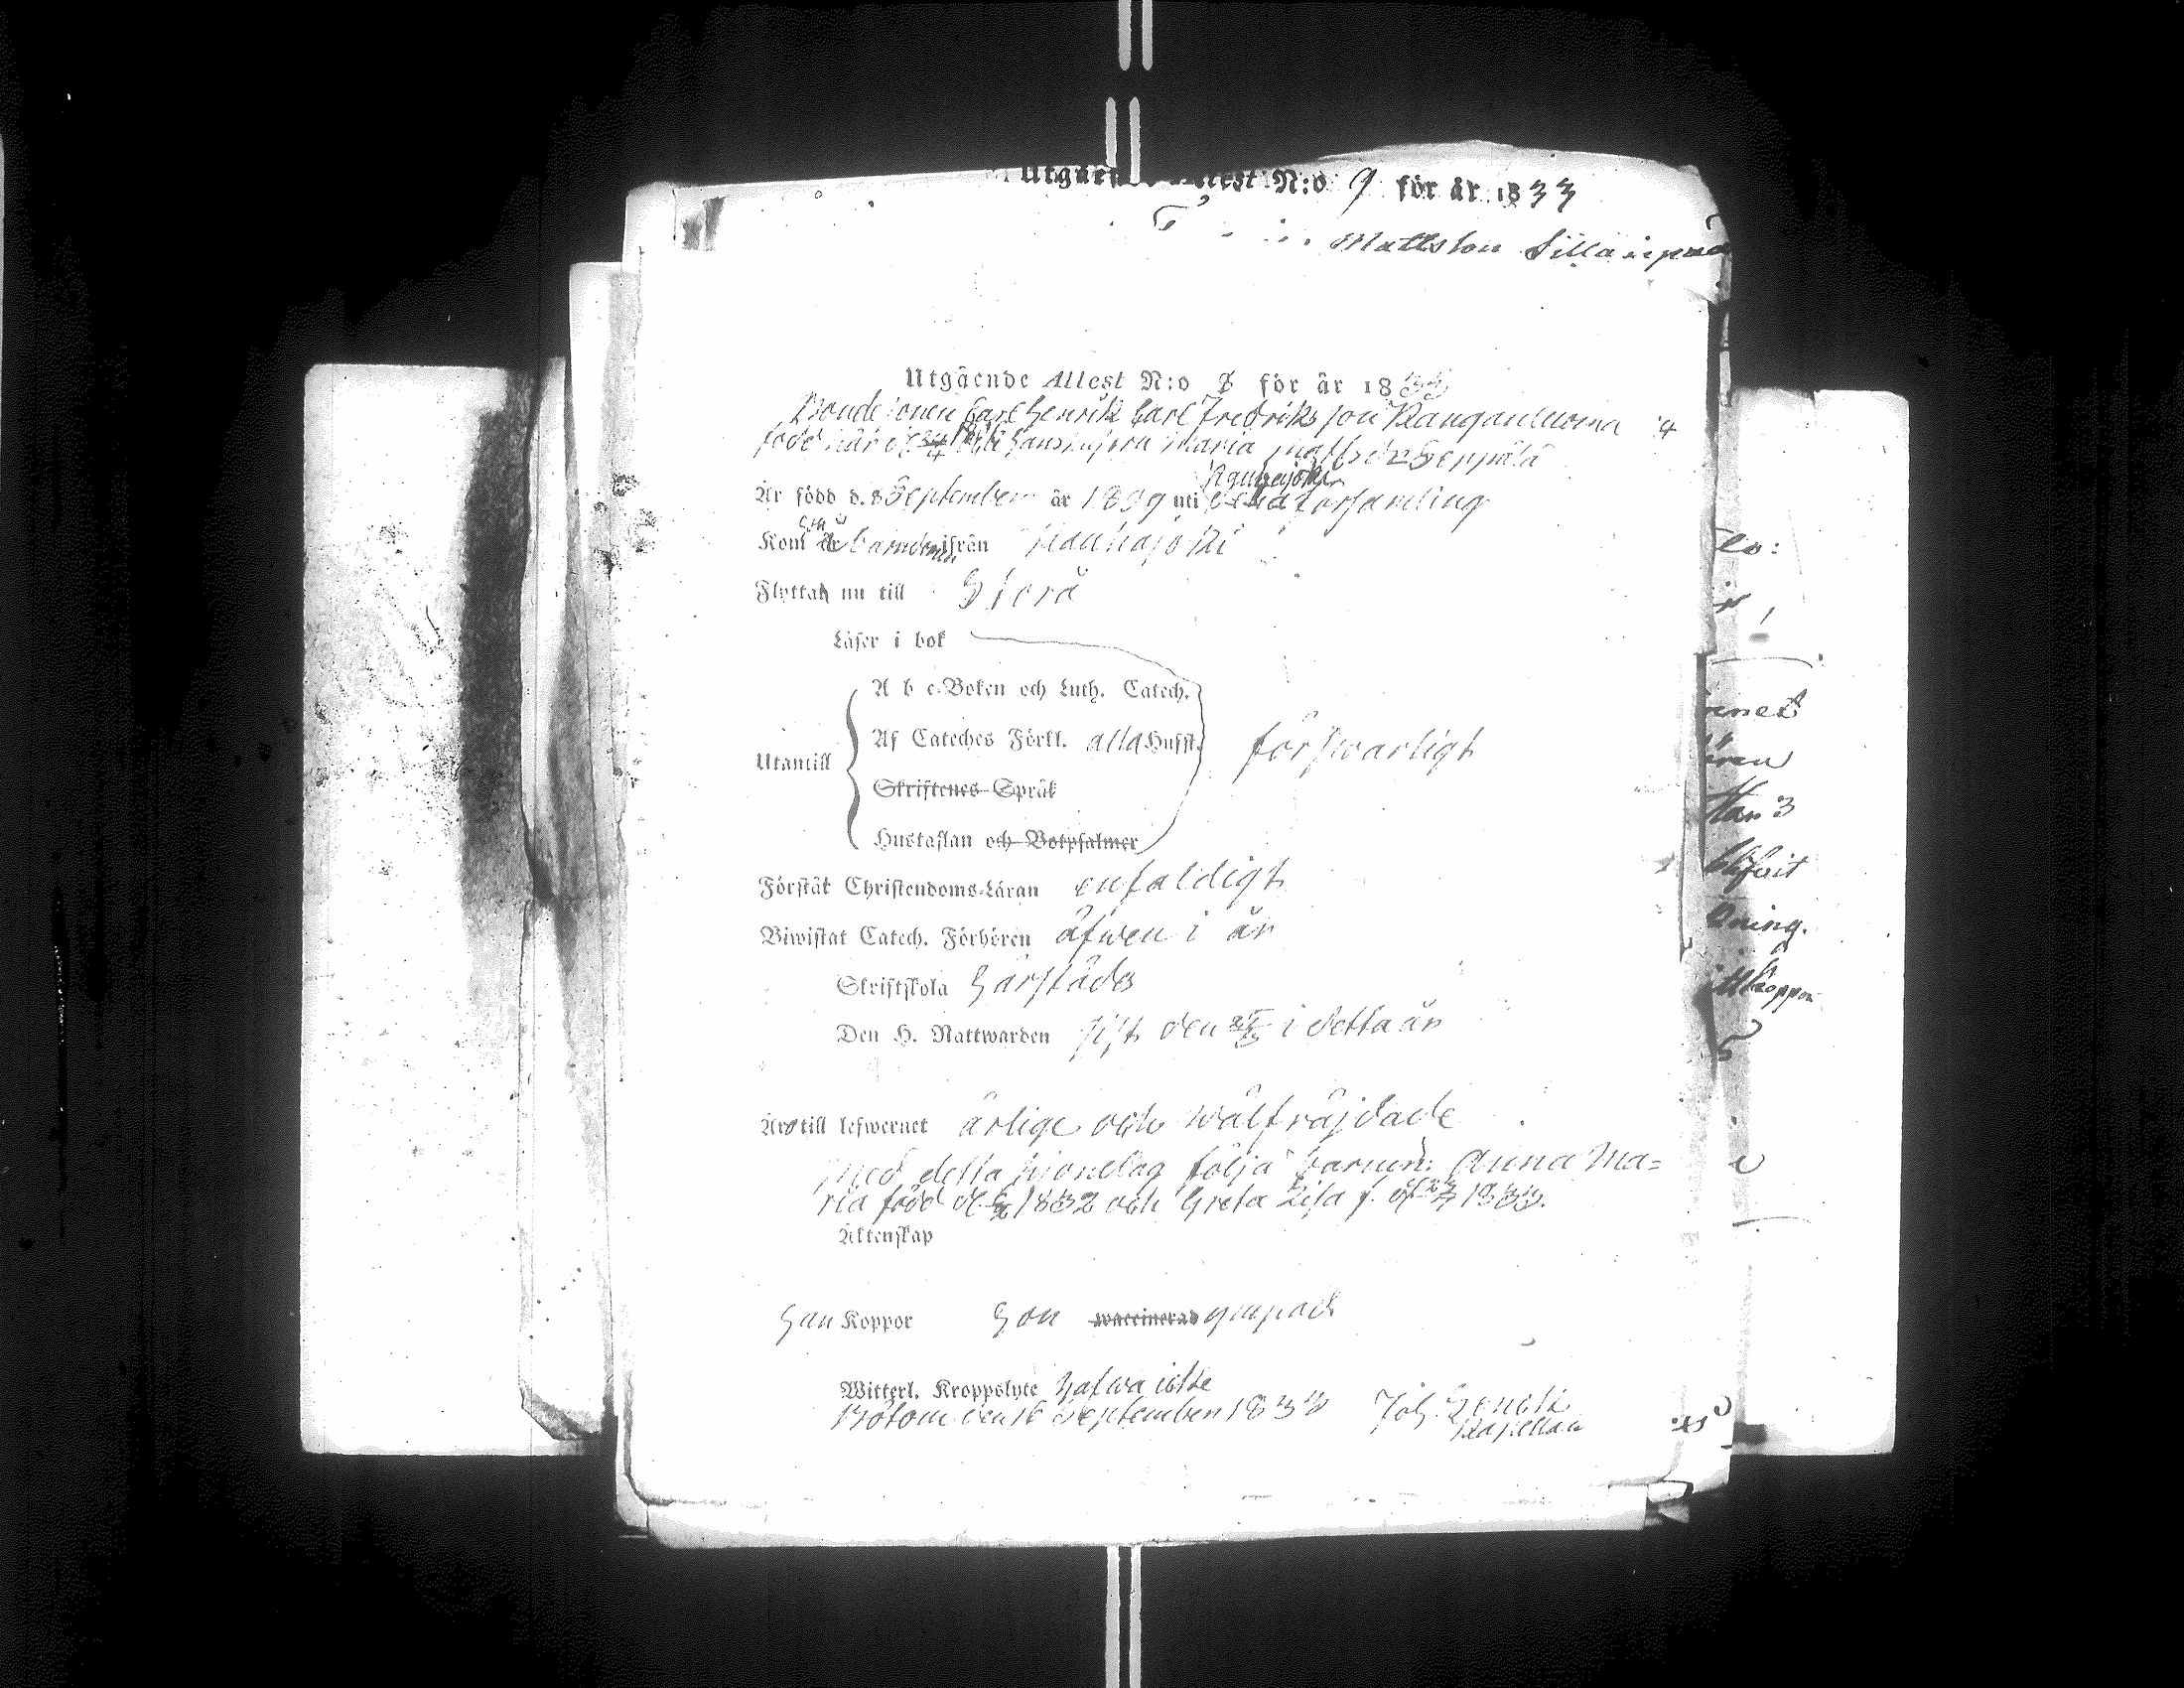 Utgåen Attest N:o 9 för år 1833
Mattsson Sillanpää
Utgående Attest N:o 8 för år 1833
Bondesonen Carl Henrik Carl Fredriksson Kanganluoma
född här hans hustru Maria Mattsdr Seppälä
Kauhajoki
Är född d. 8 September år 1809 uti församling
Kom år barndomen ifrån Kauhajoki
Flyttar nu till Storå
Läser i bok
A b c-Boken och Luth. Catech.
Af Cateches Förkl. alla Hufst. försvarligt
Utantill
Skriftenes Språk
Hustaflan och Botpsalmer
Förstår Christendoms-Läran enfaldigt
Biwistat Catech. Förhören äfwen i år
Skriftskola härstädes
Den H. Nattwarden sist den i detta år
Äro till lefwernet ärlige och wälfräjdade
Med detta hjonelag följa barnen: Anna Ma=
ria född d. 1832 och Greta Lisa f. d. 1833.
Äktenskap
Han Koppor Hon waccinerad ympad
Witterl. Kroppslyte hafwa icke
Bötom den 16 September 1833 Joh.
Kapellan